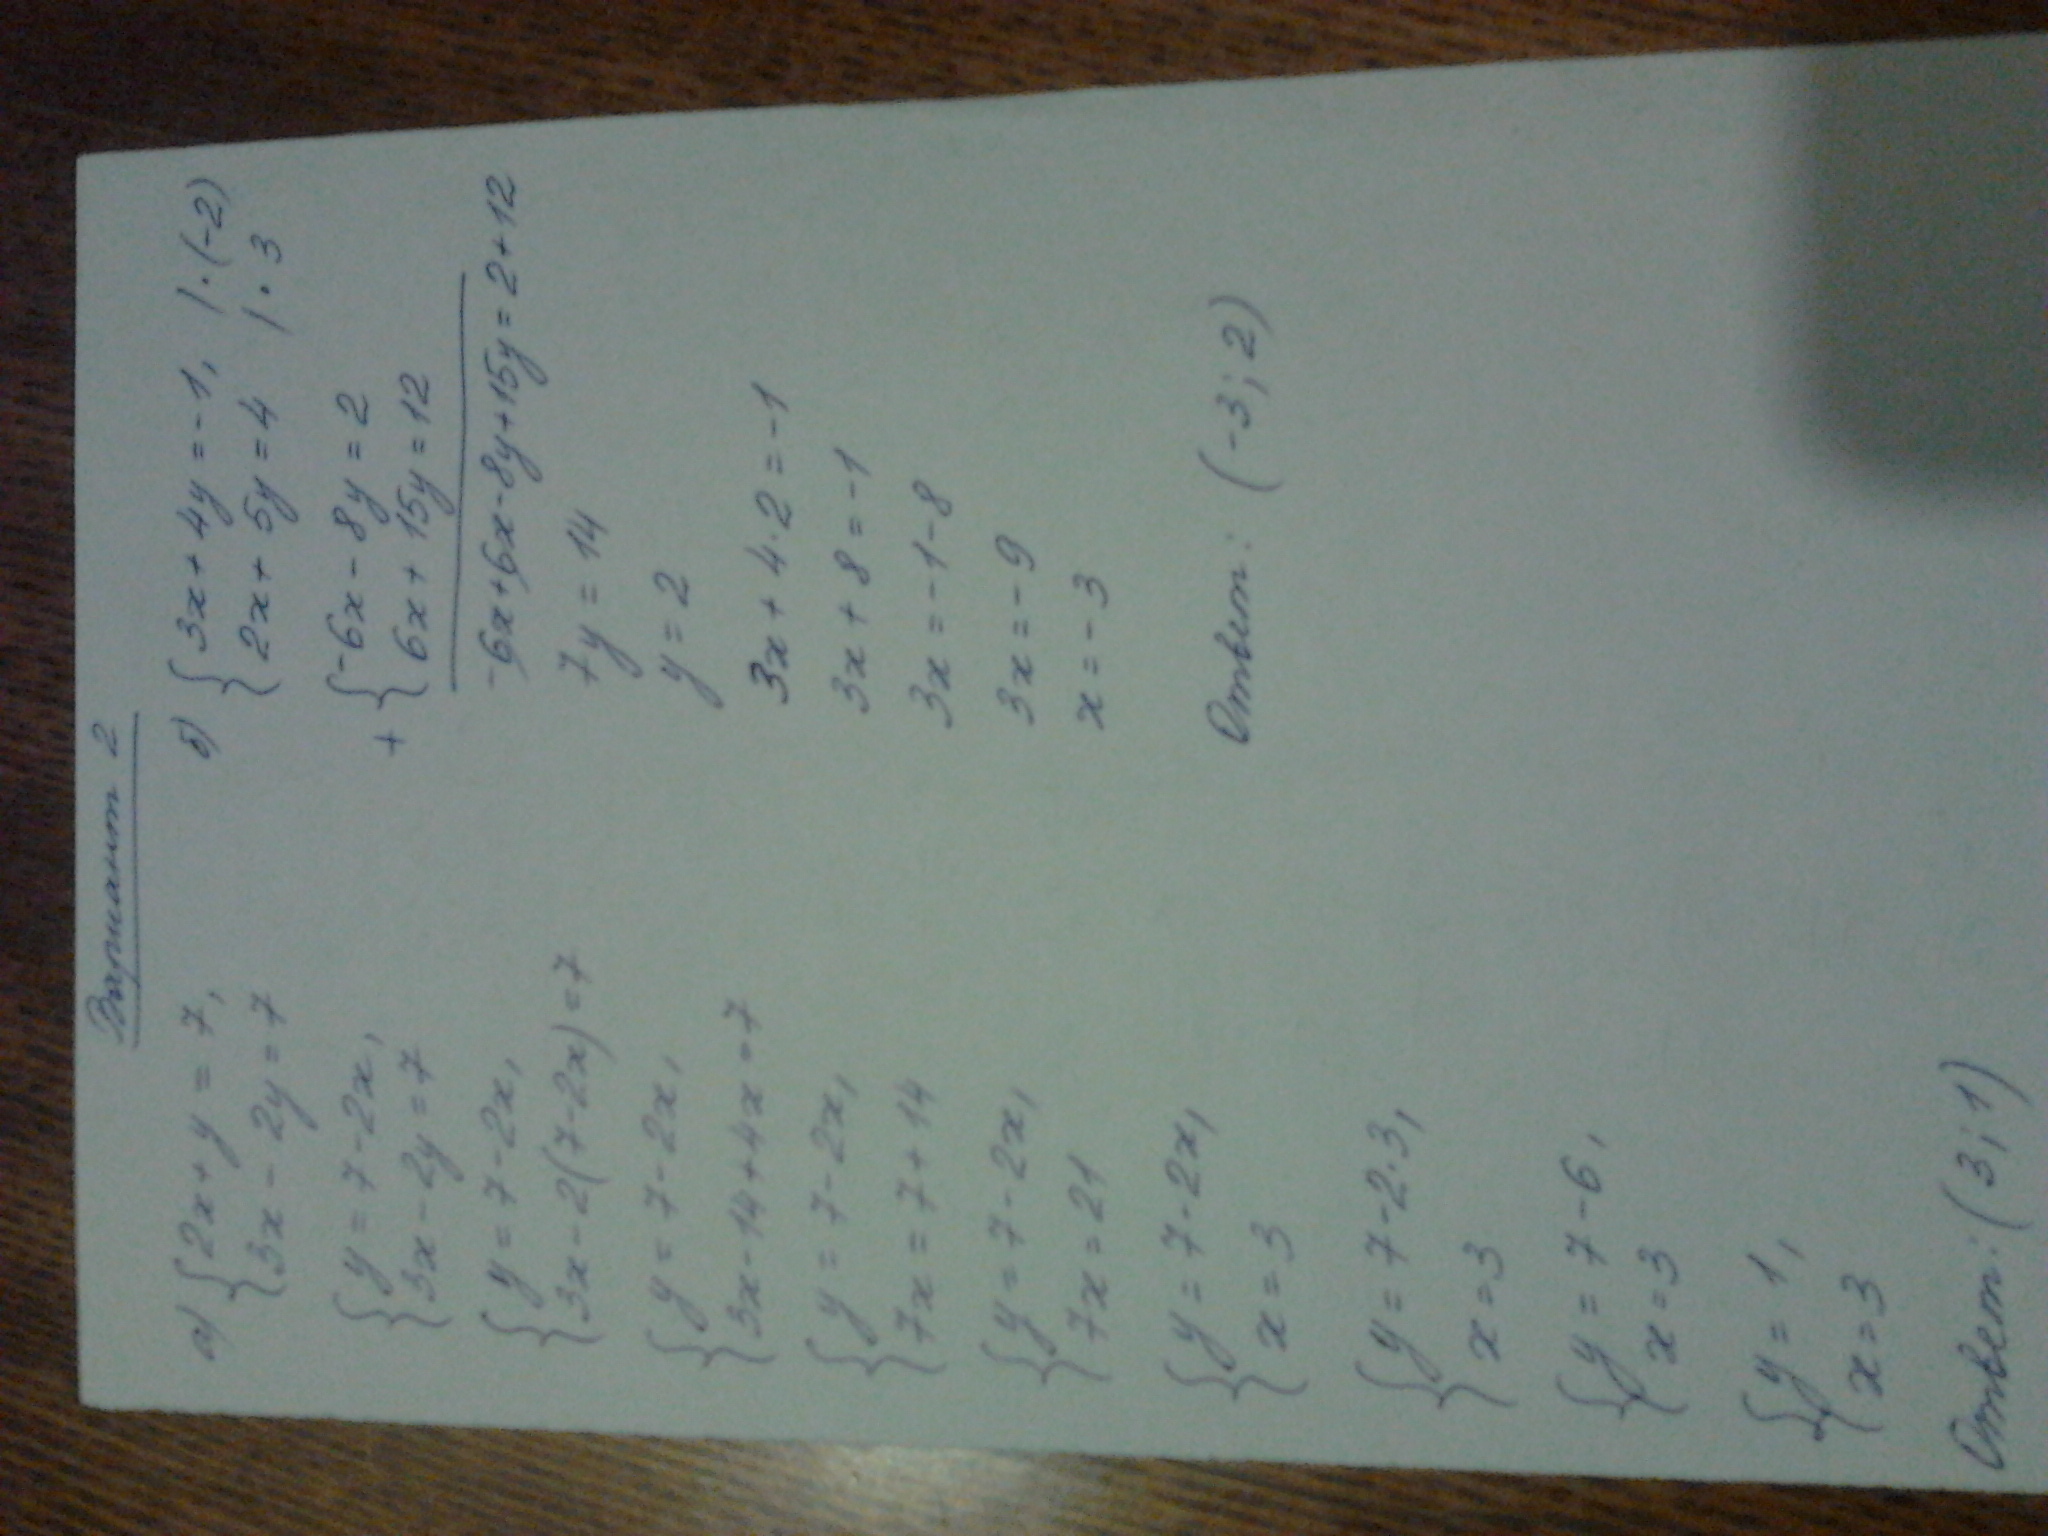 Вариант 2
а) {2x + y = 7,
3x - 2y = 7
{y = 7 - 2x,
3x - 2y = 7
{y = 7 - 2x,
3x - 2(7 - 2x) = 7
{y = 7 - 2x,
3x - 14 + 4x = 7
{y = 7 - 2x,
7x = 7 + 14
{y = 7 - 2x,
7x = 21
{y = 7 - 2x,
x = 3
{y = 7 - 2·3,
x = 3
{y = 7 - 6,
x = 3
{y = 1,
x = 3
Ответ: (3; 1)
б) {3x + 4y = -1, | · (-2)
2x + 5y = 4 | · 3
+ {-6x - 8y = 2
6x + 15y = 12
-6x + 6x - 8y + 15y = 2 + 12
7y = 14
y = 2
3x + 4·2 = -1
3x + 8 = -1
3x = -1 - 8
3x = -9
x = -3
Ответ: (-3; 2)